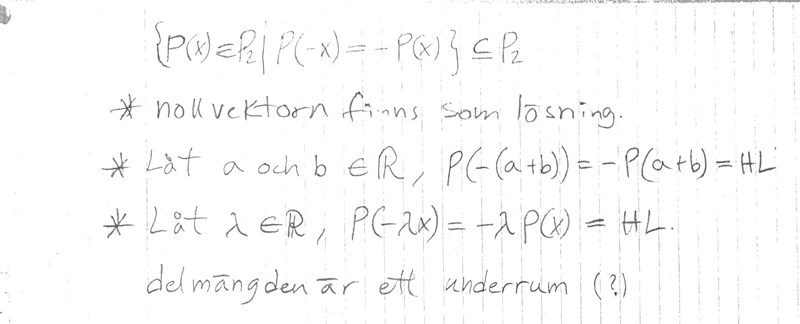 {P(x)∈P₂ | P(-x) = -P(x)} ⊆ P₂
* nollvektorn finns som lösning.
* Låt a och b ∈ ℝ, P(-(a+b)) = -P(a+b) = HL
* Låt λ ∈ ℝ, P(-λx) = -λP(x) = HL.
delmängden är ett underrum (?)